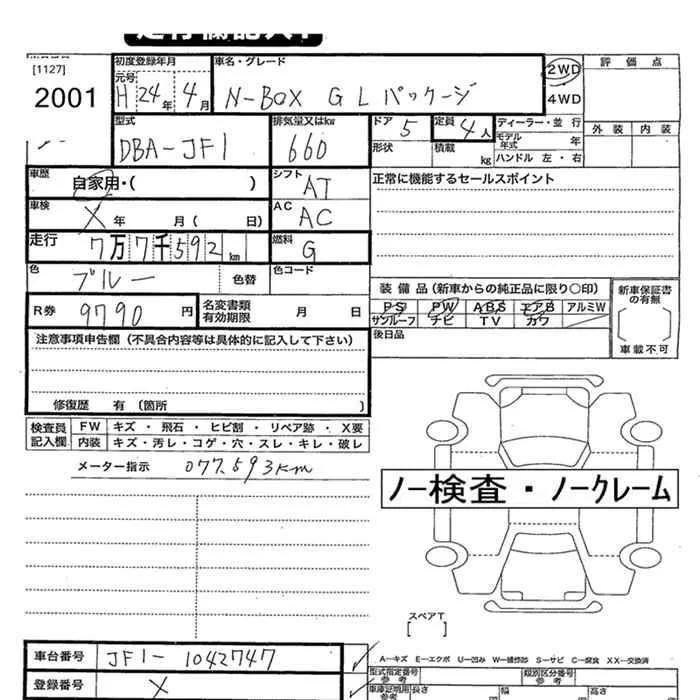 [1127]
2001
初度登録年月
元号
H 24年 4月
車名・グレード
N-BOX G L パッケージ
2WD
4WD
評価点
外装 内装
型式
DBA-JF1
排気量又はkw
660
ドア 5
形状
定員 4人
積載 kg
ディーラー・並行
モデル年式 年
ハンドル 左・右
車歴
自家用・( )
シフト
AT
正常に機能するセールスポイント
車検
X 年 月( 日)
AC
AC
走行
7万7千592km
燃料
G
色
ブルー
色替
色コード
装備品(新車からの純正品に限り〇印)
PS PW ABS エアB アルミW
サンルーフ ナビ TV カワ
後日品
新車保証書の有無
[ ]
車載不可
R券 9790円
名変書類有効期限 月 日
注意事項申告欄(不具合内容等は具体的に記入して下さい)
修復歴 有(箇所 )
検査員記入欄
FW キズ・飛石・ヒビ割・リペア跡・X要
内装 キズ・汚レ・コゲ・穴・スレ・キレ・破レ
メーター指示 077,593km
ノー検査・ノークレーム
スペアT
[ ]
A-キズ E-エクボ U-凹み W-補修跡 S-サビ C-腐食 XX-交換済
車台番号 JF1-1042747
登録番号 X
型式指定番号 参考
類別区分番号 参考
車庫証明用 参考
長さ 幅 高さ